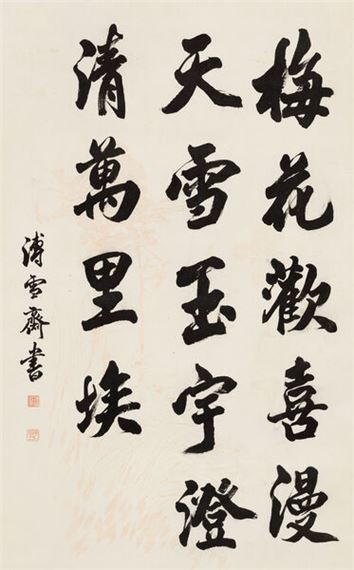 梅花歡喜漫
天雪玉宇澄
清萬里埃
溥雪齋書